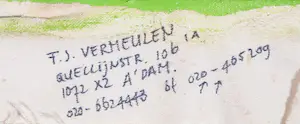 F.J. VERHEULEN
QUELLIJNSTR. 106 IA
1072 XZ A'DAM.
020-6624443 of 020-465209